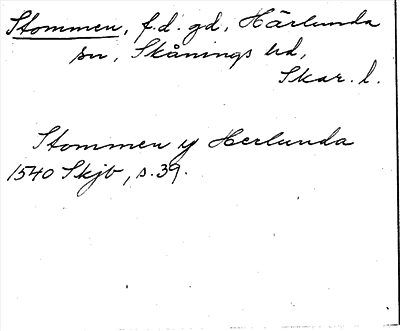 Stommen, f.d. gd, Härlunda
sn, Skånings hd,
Skar. l.
Stommen y Herlunda
1540 Skjb, s. 39.